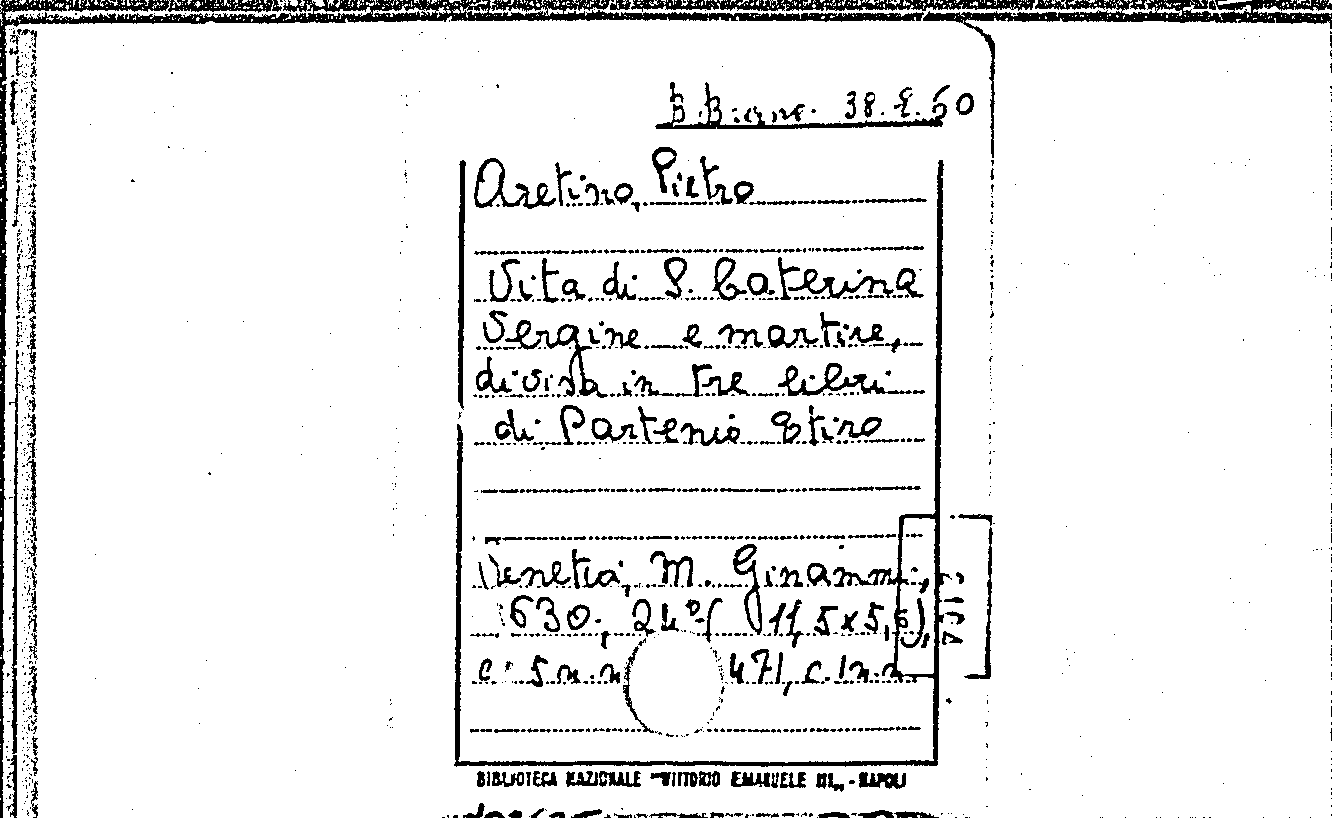 38.E.60
Aretino, Pietro
Vita di S. Caterina
Vergine e martire,
divisa in tre libri
di Partenio Etiro
Venetia, M. Ginammi,
1630, 24° ( 11,5x5,5),
c. 5 n.n 471, c.1n.n.
BIBLIOTECA NAZIONALE "VITTORIO EMANUELE III„ - NAPOLI